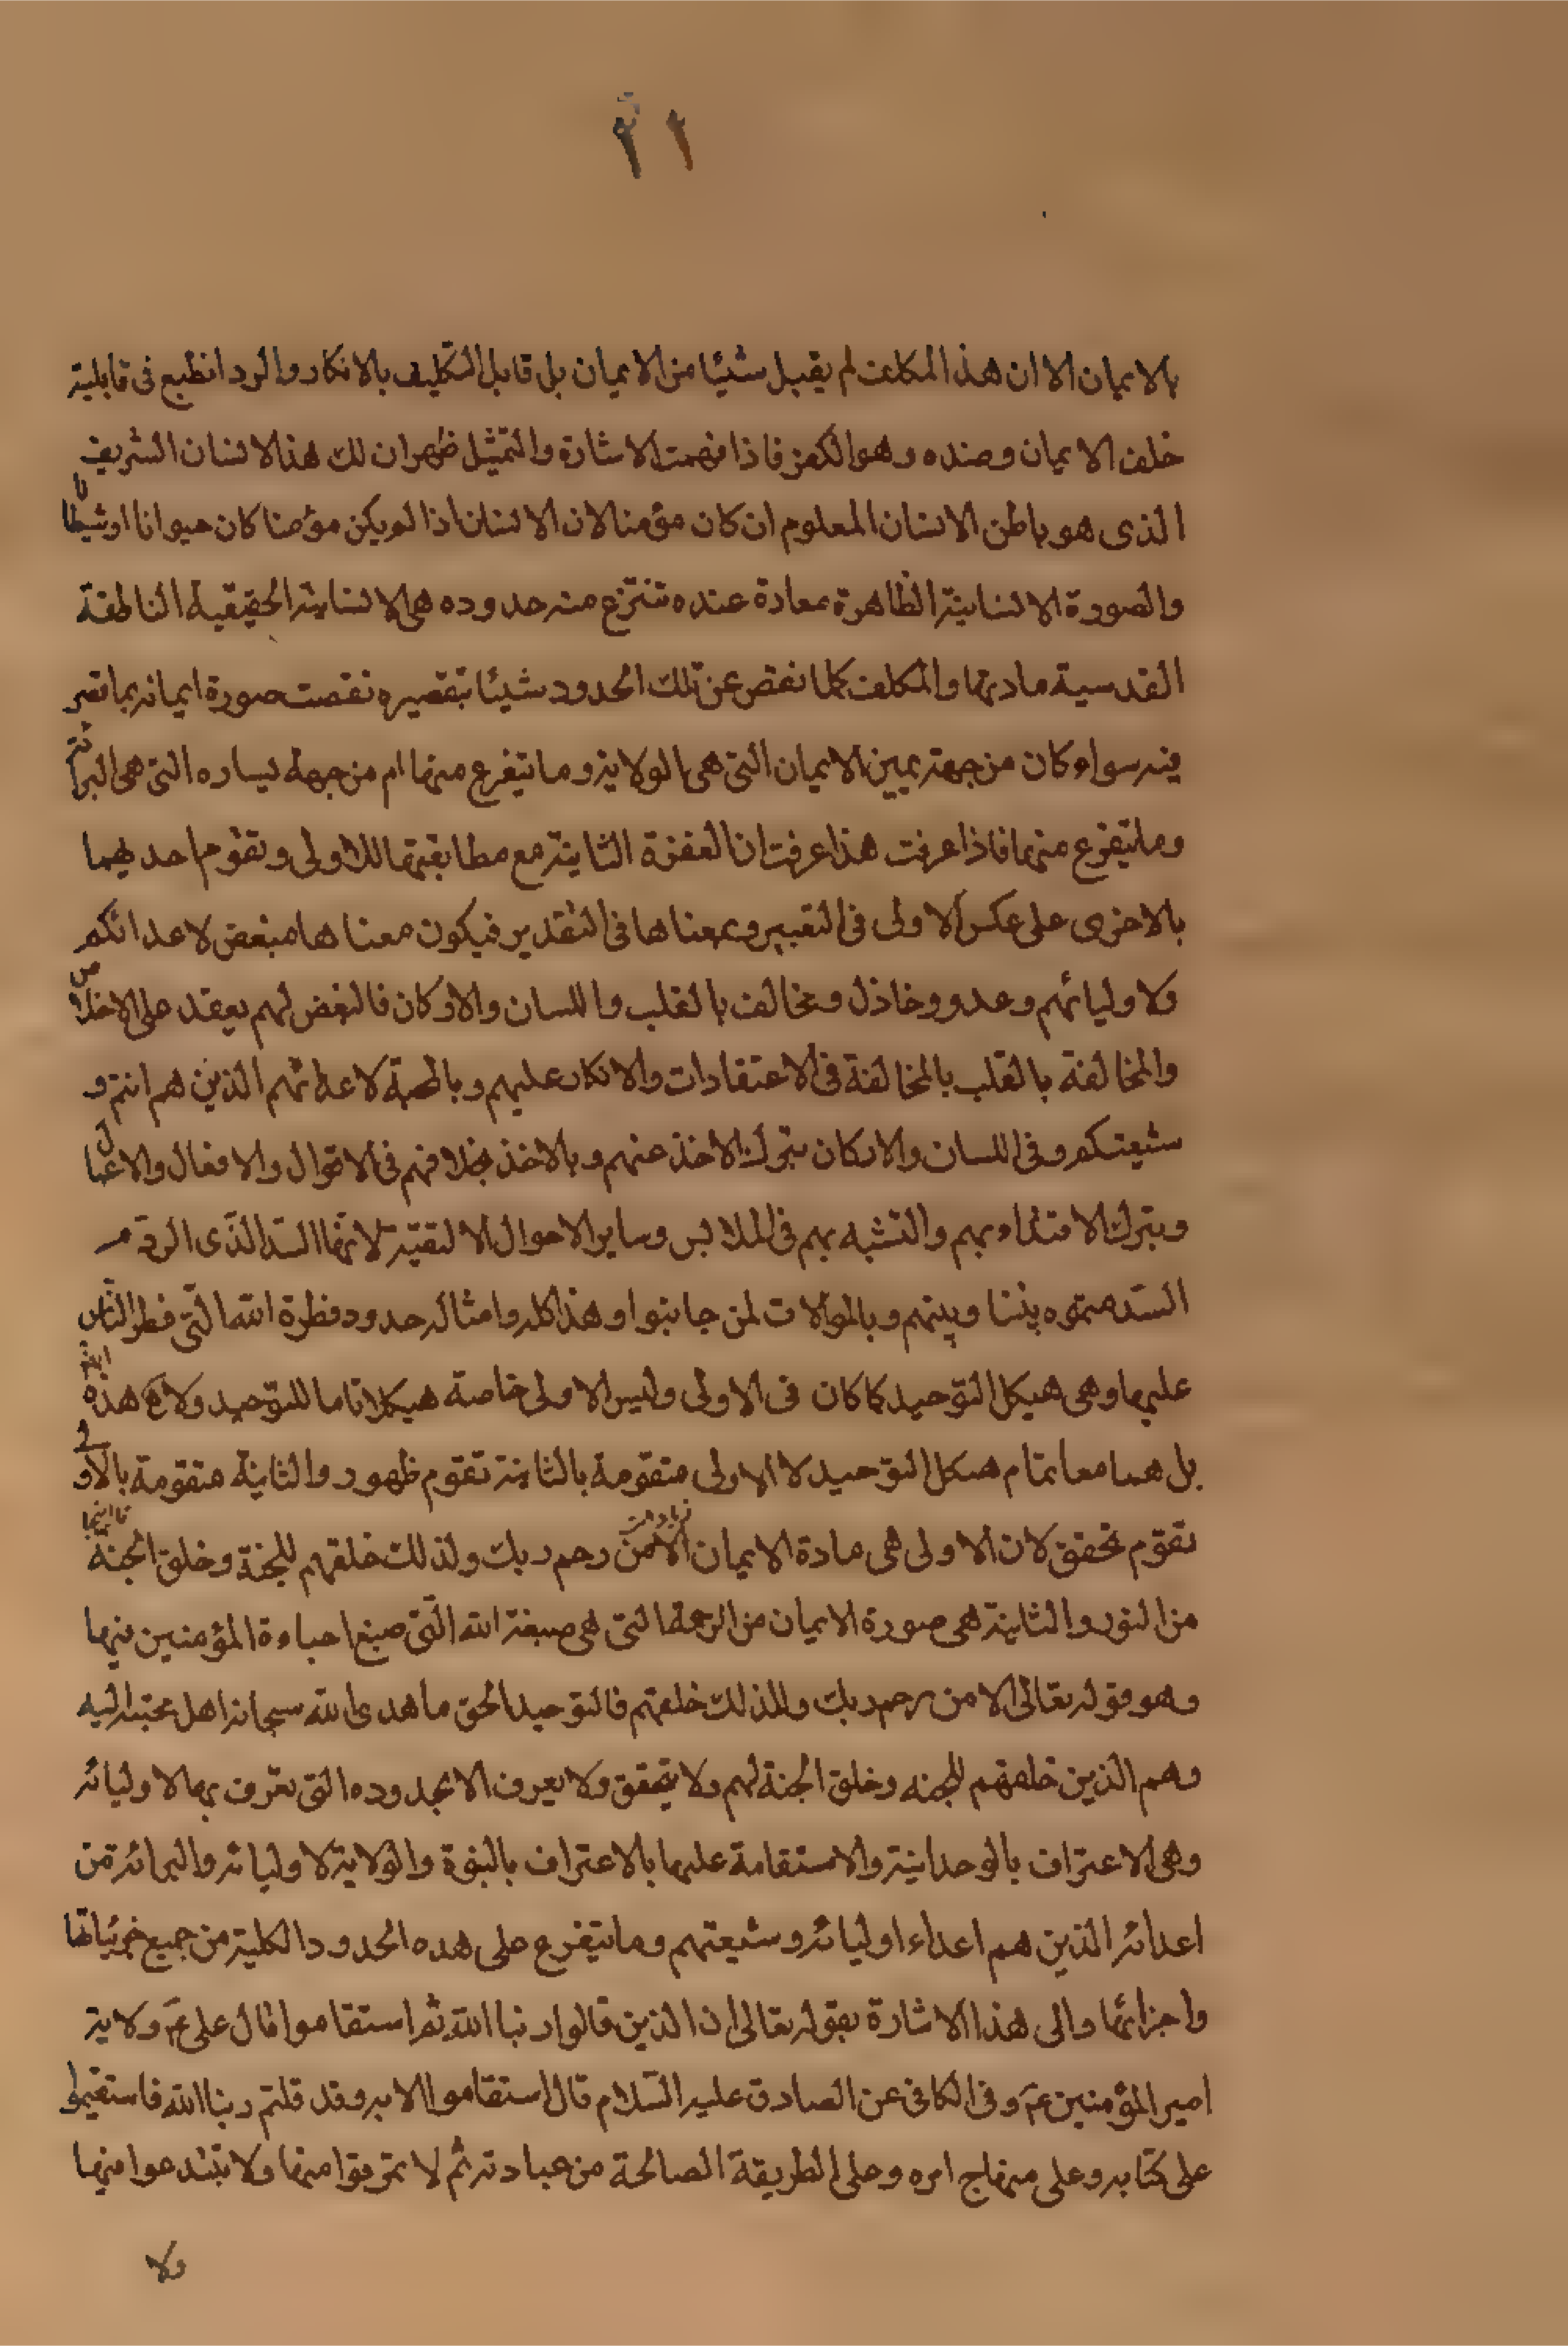 ٢٢
بالايمان الا ان هذا المكلف لم يقبل شيئا من الايمان بل قابل التكليف بالانكار والرد انطبع فى قابليته
خلف الايمان وضده وهو الكفر فاذا فهمت الاشارة والتمثيل ظهر ان لك هذا الانسان الشريف
الذى هو باطن الانسان المعلوم ان كان مؤمنا لان الانسان اذا لم يكن مؤمنا كان حيوانا او شيطانا
والصورة الانسانية الظاهرة معادة عنده تنتزع منه حدوده هى الانسانية الحقيقية الناطقة
القدسية مادتها والمكلف كلما نقص عن تلك الحدود شيئا بتقصيره نقصت صورة ايمانه بما قصر
فيه سواء كان من جهة يمين الايمان التى هى الولاية وما يتفرع منها ام من جهة يساره التى هى البرائة
وما يتفرع منها فاذا عرفت هذا عرفت ان الفقرة الثانية مع مطابقتها للاولى وتقوم احديهما
بالاخرى على عكس الاولى فى التعبير وبمعناها فى التقدير فيكون معناها مبغض لاعدائكم
ولاوليائهم وعدو وخاذل ومخالف بالقلب واللسان والاركان فالبغض لهم يعقد على الاخلاص
والمخالفة بالقلب بالمخالفة فى الاعتقادات والانكار عليهم وبالمحبة لاعدائهم الذين هم انتم و
شيعتكم وفى اللسان والاركان بترك الاخذ عنهم وبالاخذ بخلافهم فى الاقوال والافعال والاعمال
وبترك الاقتداء بهم والتشبه بهم فى الملابس وساير الاحوال الا لتقية لانها السد الذى الرقم
السد صنموه بيننا وبينهم وبالموالات لمن جانبوا وهذا كله وامثاله حدود فطرة الله التى فطر الناس
عليها وهى هيكل التوحيد كما كان فى الاولى وليس الاولى خاصة هيكلا تاما للتوحيد ولا هذه ايضا
بل هما معا تمام هيكل التوحيد لا الاولى متقومة بالثانية تقوم ظهور والثانية متقومة بالاولى
تقوم تحقق لان الاولى هى مادة الايمان الا من رحم ربك ولذلك خلقهم للجنة وخلق الجنة
من النور والثانية هى صورة الايمان من الرحمة التى هى صبغة الله التى صبغ احباءه المؤمنين فيها
وهو قوله تعالى الا من رحم ربك ولذلك خلقهم فالتوحيد الحق ما هدى الله سبحانه اهل محبته اليه
وهم الذين خلقهم للجنه وخلق الجنة لهم ولا يتحقق ولا يعرف الا بحدوده التى تعرف بها لاوليائه
وهى الاعتراف بالوحدانية والاستقامة عليها بالاعتراف بالنبوة والولاية لاوليائه والبرائة من
اعدائه الذين هم اعداء اوليائه وشيعتهم وما يتفرع على هذه الحدود الكلية من جميع جزئياتها
واجزائها والى هذا الاشارة بقوله تعالى ان الذين قالوا ربنا الله ثم استقاموا قال على عَ ولاية
امير المؤمنين عَ وفى الكافى عن الصادق عليه السّلام قال استقاموا الايه وقد قلتم ربنا الله فاستقيموا
على كتابه وعلى منهاج امره وعلى الطريقة الصالحة من عبادته ثم لا تمرقوا منها ولا تبتدعوا فيها
ولا